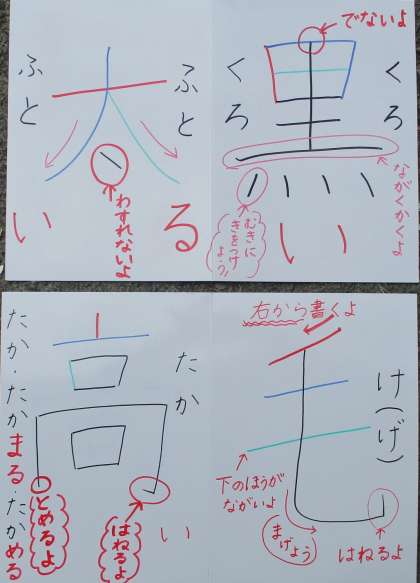 太
ふとる
ふとい
わすれないよ
でないよ
黒
くろ
くろい
ながくかくよ
むきに
きをつけ
よう!
高
たかい
たか・たかまる・たかめる
とめるよ
はねるよ
右から書くよ
毛
け(げ)
下のほうが
ながいよ
まげよう
はねるよ